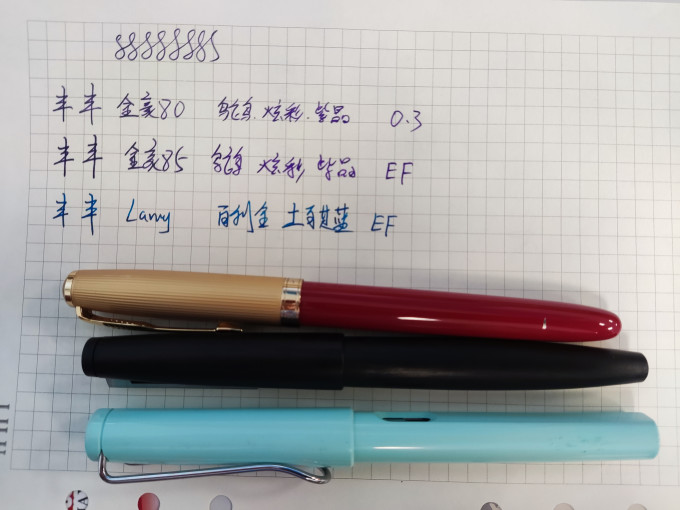 888888885
丰丰 金豪80 鸵鸟 炫彩 紫晶 0.3
丰丰 金豪85 鸵鸟 炫彩 紫晶 EF
丰丰 Lamy 百利金 土耳其蓝 EF